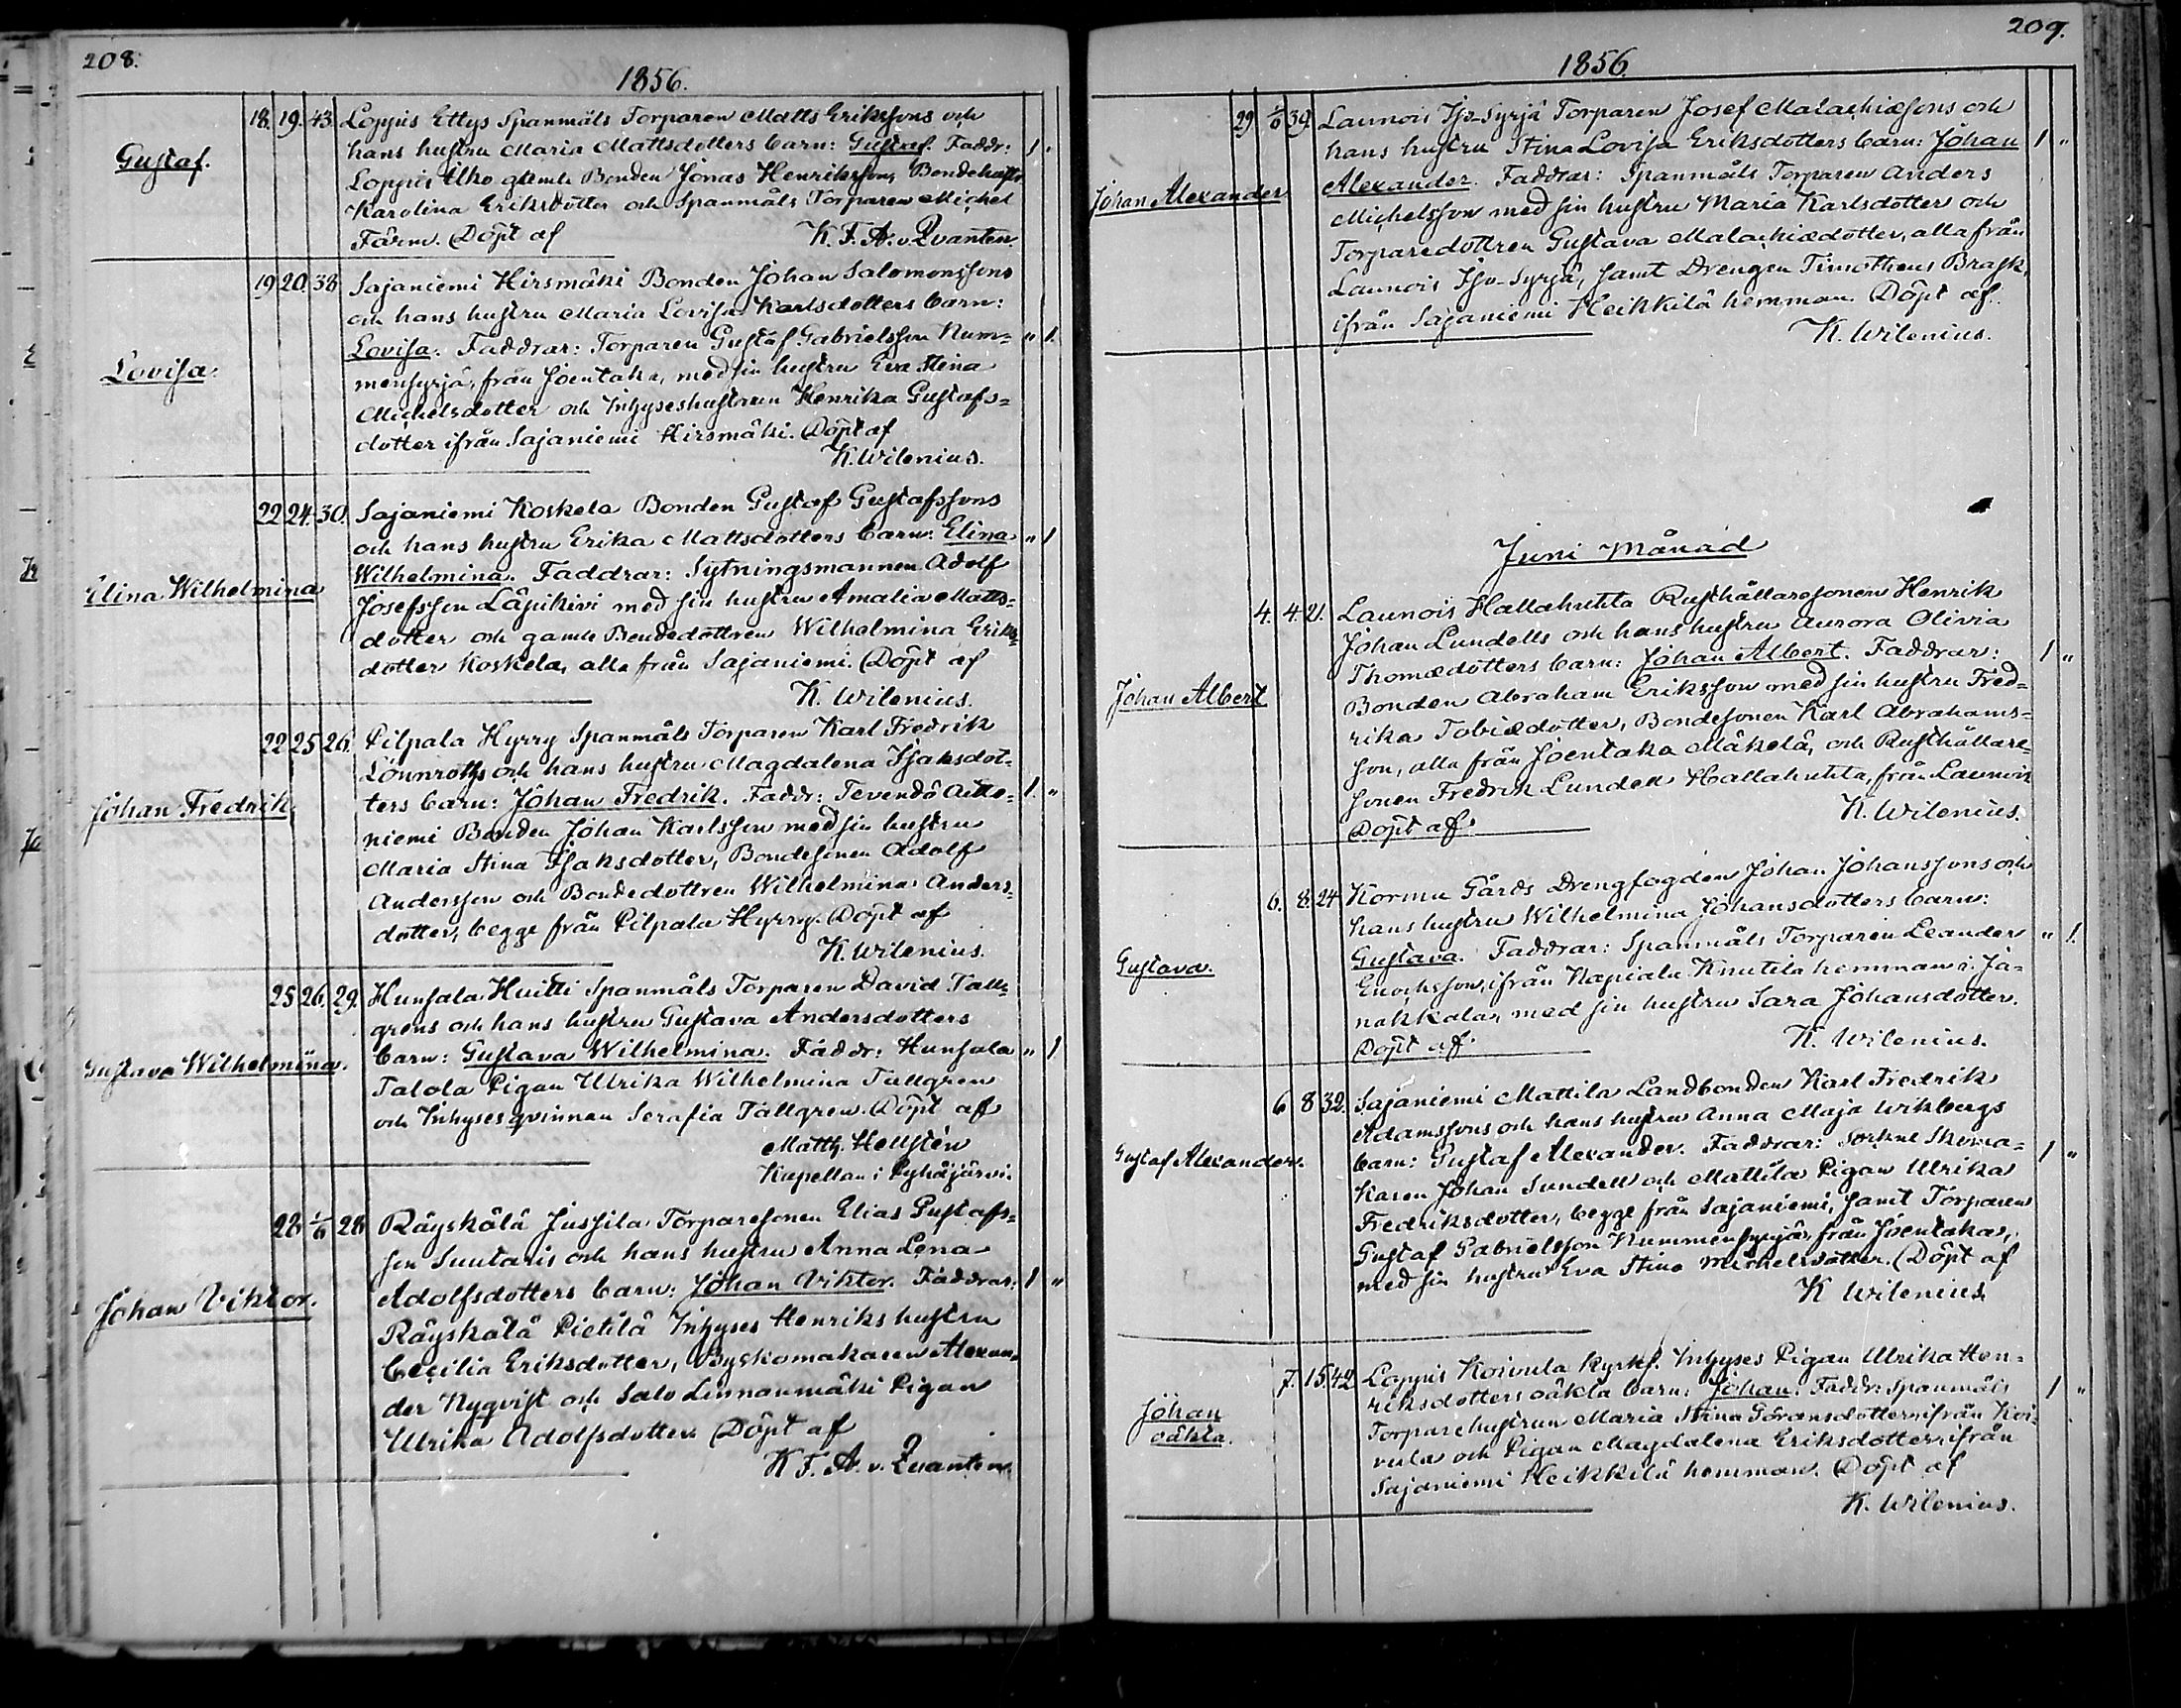 208.
1856.
Gustaf.
18. 19. 43. Loppis Ettys Spanmåls Torparen Matts Erikssons och
hans hustru Maria Mattsdotters barn: Gustaf. Faddr: 1 "
Loppis Ilko gamle Bonden Jonas Henriksson, Bondehustr.
Karolina Eriksdotter och Spanmåls Torparen Michel
Färm. Döpt af K. F. A. v. Qvanten.
Lovisa.
19 20. 38 Sajaniemi Hirsmäki Bonden Johan Salomonssons
och hans hustru Maria Lovisa Karlsdotters barn:
Lovisa. Faddrar: Torparen Gustaf Gabrielsson Num= " 1.
mensyrjä, från Joentaka, med sin hustru Eva Stina
Michelsdotter och Inhyseshustrun Henrika Gustafs=
dotter ifrån Sajaniemi Hirsmäki. Döpt af
K. Wilenius.
Elina Wilhelmina
22 24. 30. Sajaniemi Koskela Bonden Gustaf Gustafssons
och hans hustru Erika Mattsdotters barn: Elina " 1
Wilhelmina. Faddrar: Sytningsmannen Adolf
Josefsson Läpikivi med sin hustru Amalia Matts=
dotter och gamle Bondedottren Wilhelmina Eriks=
dotter Koskela, alla från Sajaniemi. Döpt af
K. Wilenius.
Johan Fredrik
22 25 26. Pilpala Hyrry Spanmåls Torparen Karl Fredrik
Lönnroths och hans hustru Magdalena Isaksdot=
ters barn: Johan Fredrik. Faddr: Tevendö Aitto= 1. "
niemi Bonden Johan Karlsson med sin hustru
Maria Stina Isaksdotter, Bondesonen Adolf
Andersson och Bondedottren Wilhelmina Anders=
dotter, begge från Pilpala Hyrry. Döpt af
K. Wilenius.
Gustava Wilhelmina.
25 26. 29. Hunsala Huitti Spanmåls Torparen David Tall=
grens och hans hustru Gustava Andersdotters
barn: Gustava Wilhelmina. Faddr: Hunsala " 1
Talola Pigan Ulrika Wilhelmina Tallgren
och Inhysesqvinnan Serafia Tallgren. Döpt af
Matth. Hellstén
Kapellan i Pyhäjärvi.
Johan Viktor.
28 1/6 28 Räyskälä Jussila Torparesonen Elias Gustafs=
son Suutaris och hans hustru Anna Lena
Adolfsdotters barn: Johan Viktor. Faddrar: 1 "
Räyskälä Pietilä Inhyses Henriks hustru
Cecilia Eriksdotter, Byskomakaren Alexan=
der Nyqvist och Salo Linnanmäki Pigan
Ulrika Adolfsdotter. Döpt af
K. F. A. v. Qvanten.
209.
1856.
Johan Alexander
29 1/6 39. Launois Iso-Syrjä Torparen Josef Malachiæsons och
hans hustru Stina Lovisa Eriksdotters barn: Johan 1 "
Alexander. Faddrar: Spanmåls Torparen Anders
Michelsson med sin hustru Maria Karlsdotter och
Torparedottren Gustava Malachiædotter, alla från
Launois Iso-Syrjä, samt Drengen Timotheus Brask,
ifrån Sajaniemi Heikkilä hemman. Döpt af
K. Wilenius.
Juni Månad
Johan Albert
4. 4. 21. Launois Hallahuhta Rusthållaresonen Henrik
Johan Lundells och hans hustru Aurora Olivia
Thomædotters barn: Johan Albert. Faddrar: 1 "
Bonden Abraham Eriksson med sin hustru Fred=
rika Tobiædotter, Bondesonen Karl Abrahams=
son, alla från Joentaka Mäkelä, och Rusthållare=
sonen Fredrik Lundell Hallahuhta, från Launois
Döpt af K. Wilenius.
Gustava.
6. 8. 24 Kormu Gårds Drengfogden Johan Johanssons och
hans hustru Wilhelmina Johansdotters barn:
Gustava. Faddrar: Spanmåls Torparen Leander " 1.
Enochsson, ifrån Napiala Knutila hemman i Ja=
nakkala, med sin hustru Sara Johansdotter.
Döpt af K. Wilenius.
Gustaf Alexander.
6 8 32. Sajaniemi Mattila Landbonden Karl Fredrik
Adamssons och hans hustru Anna Maja Wikbergs
barn: Gustaf Alexander. Faddrar: Sockne Skoma= 1 "
karen Johan Sundell och Mattila Pigan Ulrika
Fredriksdotter, begge från Sajaniemi, samt Torparen
Gustaf Gabrielsson Nummensyrjä, från Joentaka,
med sin hustru Eva Stina Michelsdotter. Döpt af
K Wilenius.
Johan
oäkta.
7. 15 42 Loppis Koivula Kyrkf. Inhyses Pigan Ulrika Hen=
riksdotters oäkta barn: Johan. Faddr: Spanmåls 1 "
Torparehustrun Maria Stina Göransdotter, ifrån Koi=
vula och Pigan Magdalena Eriksdotter, ifrån
Sajaniemi Heikkilä hemman. Döpt af
K. Wilenius.